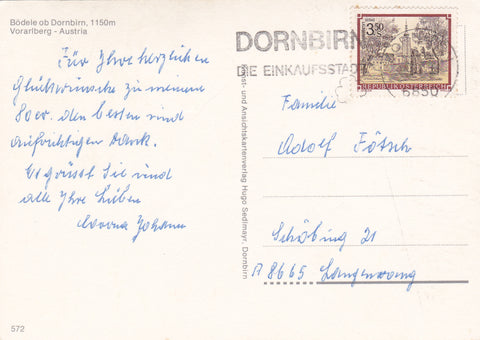 Bödele ob Dornbirn, 1150m
Vorarlberg - Austria
Für Ihre herzlichen
Glückwünsche zu meinem
80er. den besten und
aufrichtigen Dank.
Es grüsst Sie und
alle Ihre Lieben
Johann
572
Kunst- und Ansichtskartenverlag Hugo Sedlmayr, Dornbirn
DORNBIRN
DIE EINKAUFSSTADT
6850
3.50
REPUBLIK ÖSTERREICH
Familie
Adolf Fötsch
Schöbing 21
A 8665 Langenwang